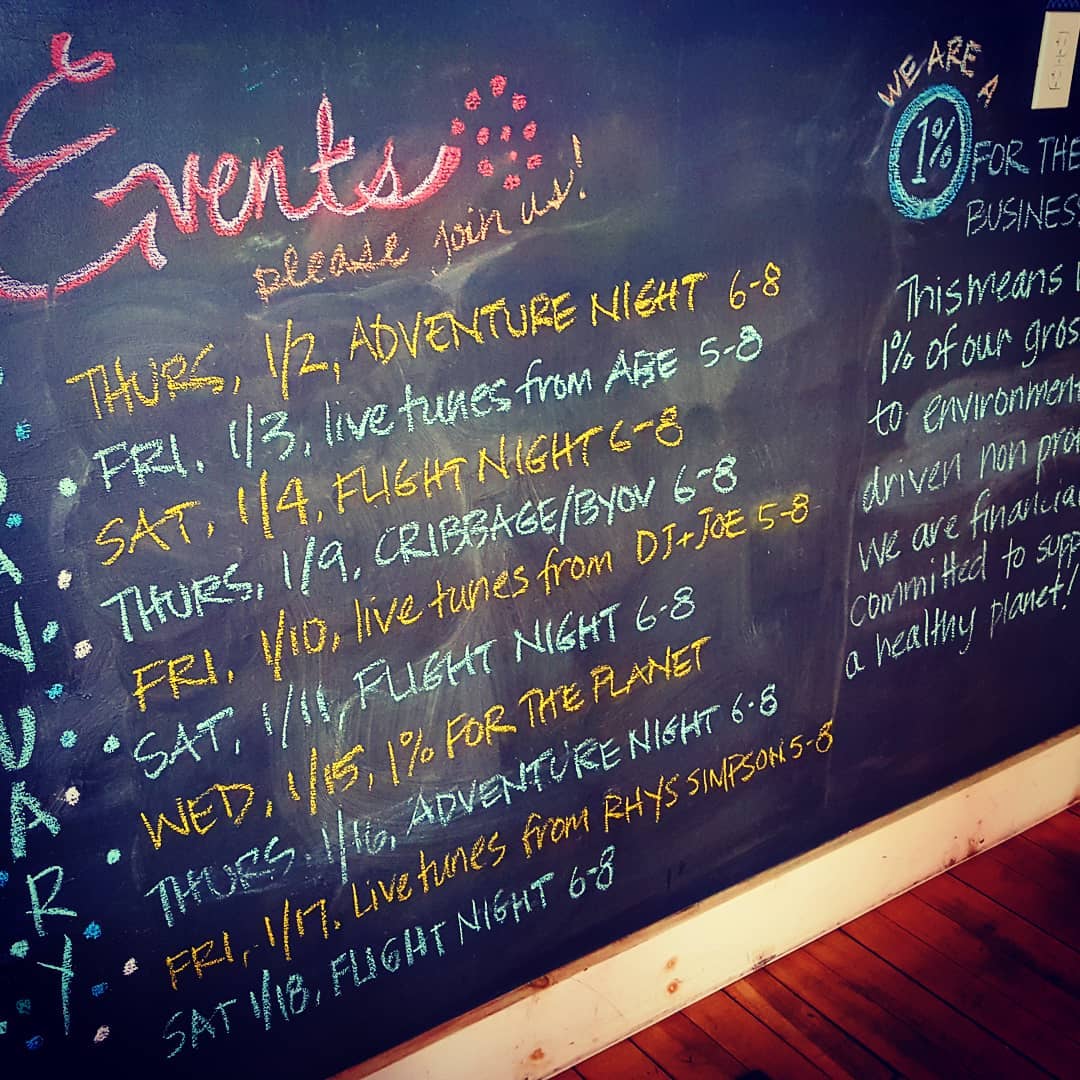 Events
please join us!
JANUARY
THURS, 1/2, ADVENTURE NIGHT 6-8
FRI. 1/3, live tunes from ABE 5-8
SAT, 1/4, FLIGHT NIGHT 6-8
THURS, 1/9, CRIBBAGE/BYOV 6-8
FRI. 1/10, live tunes from DJ+JOE 5-8
SAT, 1/11, FLIGHT NIGHT 6-8
WED, 1/15, 1% FOR THE PLANET
THURS. 1/16, ADVENTURE NIGHT 6-8
FRI, 1/17. Live tunes from RHYS SIMPSON 5-8
SAT 1/18, FLIGHT NIGHT 6-8
WE ARE A
1% FOR THE
BUSINESS
This means
1% of our gros
to environment
driven non pro
we are financial
committed to supp
a healthy planet!